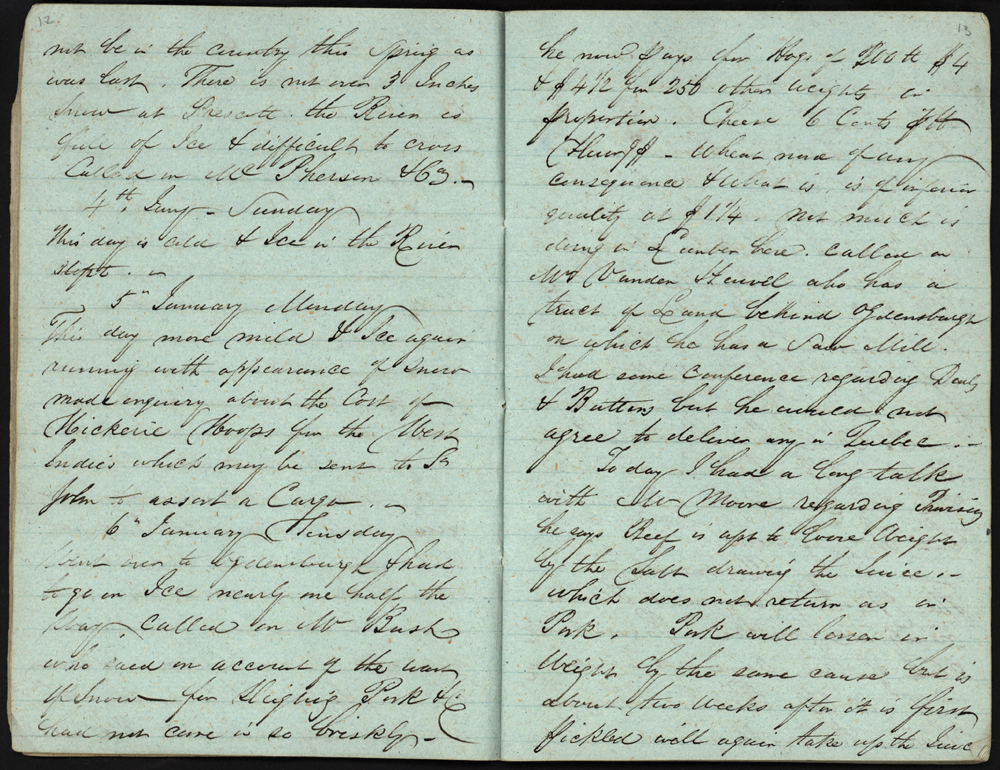 12.
not be in the country this Spring as
was last. There is not over 3 Inches
Snow at Prescott. the River is
full of Ice & difficult to cross
Called on Mc Pherson & Co. –
4th Jany – Sunday
This day is cold & Ice in the River
stopt. –
5th January Monday
This day more mild & Ice again
running with appearance of Snow
made enquiry about the Cost of
Hickerie Hoops for the West
Indies which may be sent to St
John to assort a Cargo. –
6th January Tuesday
Went over to Ogdensburgh & had
to go on Ice nearly one half the
Way. Called on Mr Bush
who said on account of the want
of Snow – for Sleighing Pork &c
had not come in so briskly –
13
he now pays for Hogs of 200 lb $4
& $4 1/2 for 250 other weights in
proportion. Cheese 6 Cents
– Wheat none of any
consequence & what is, is of inferior
quality at $1 1/4. not much is
doing in Lumber here. Called on
Mr Vanden Heuvel who has a
tract of Land behind Ogdensburgh
on which he has a Saw Mill.
I had some conference regarding Deals
& Battens but he would not
agree to deliver any in Quebec. –
To day I had a long talk
with Mr Moore regarding
he says Beef is apt to loose Weight
by the Salt drawing the Juice. –
which does not return as in
Pork. Pork will lessen in
Weight by the same cause but in
about two weeks after it is first
pickled will again take up the Juice